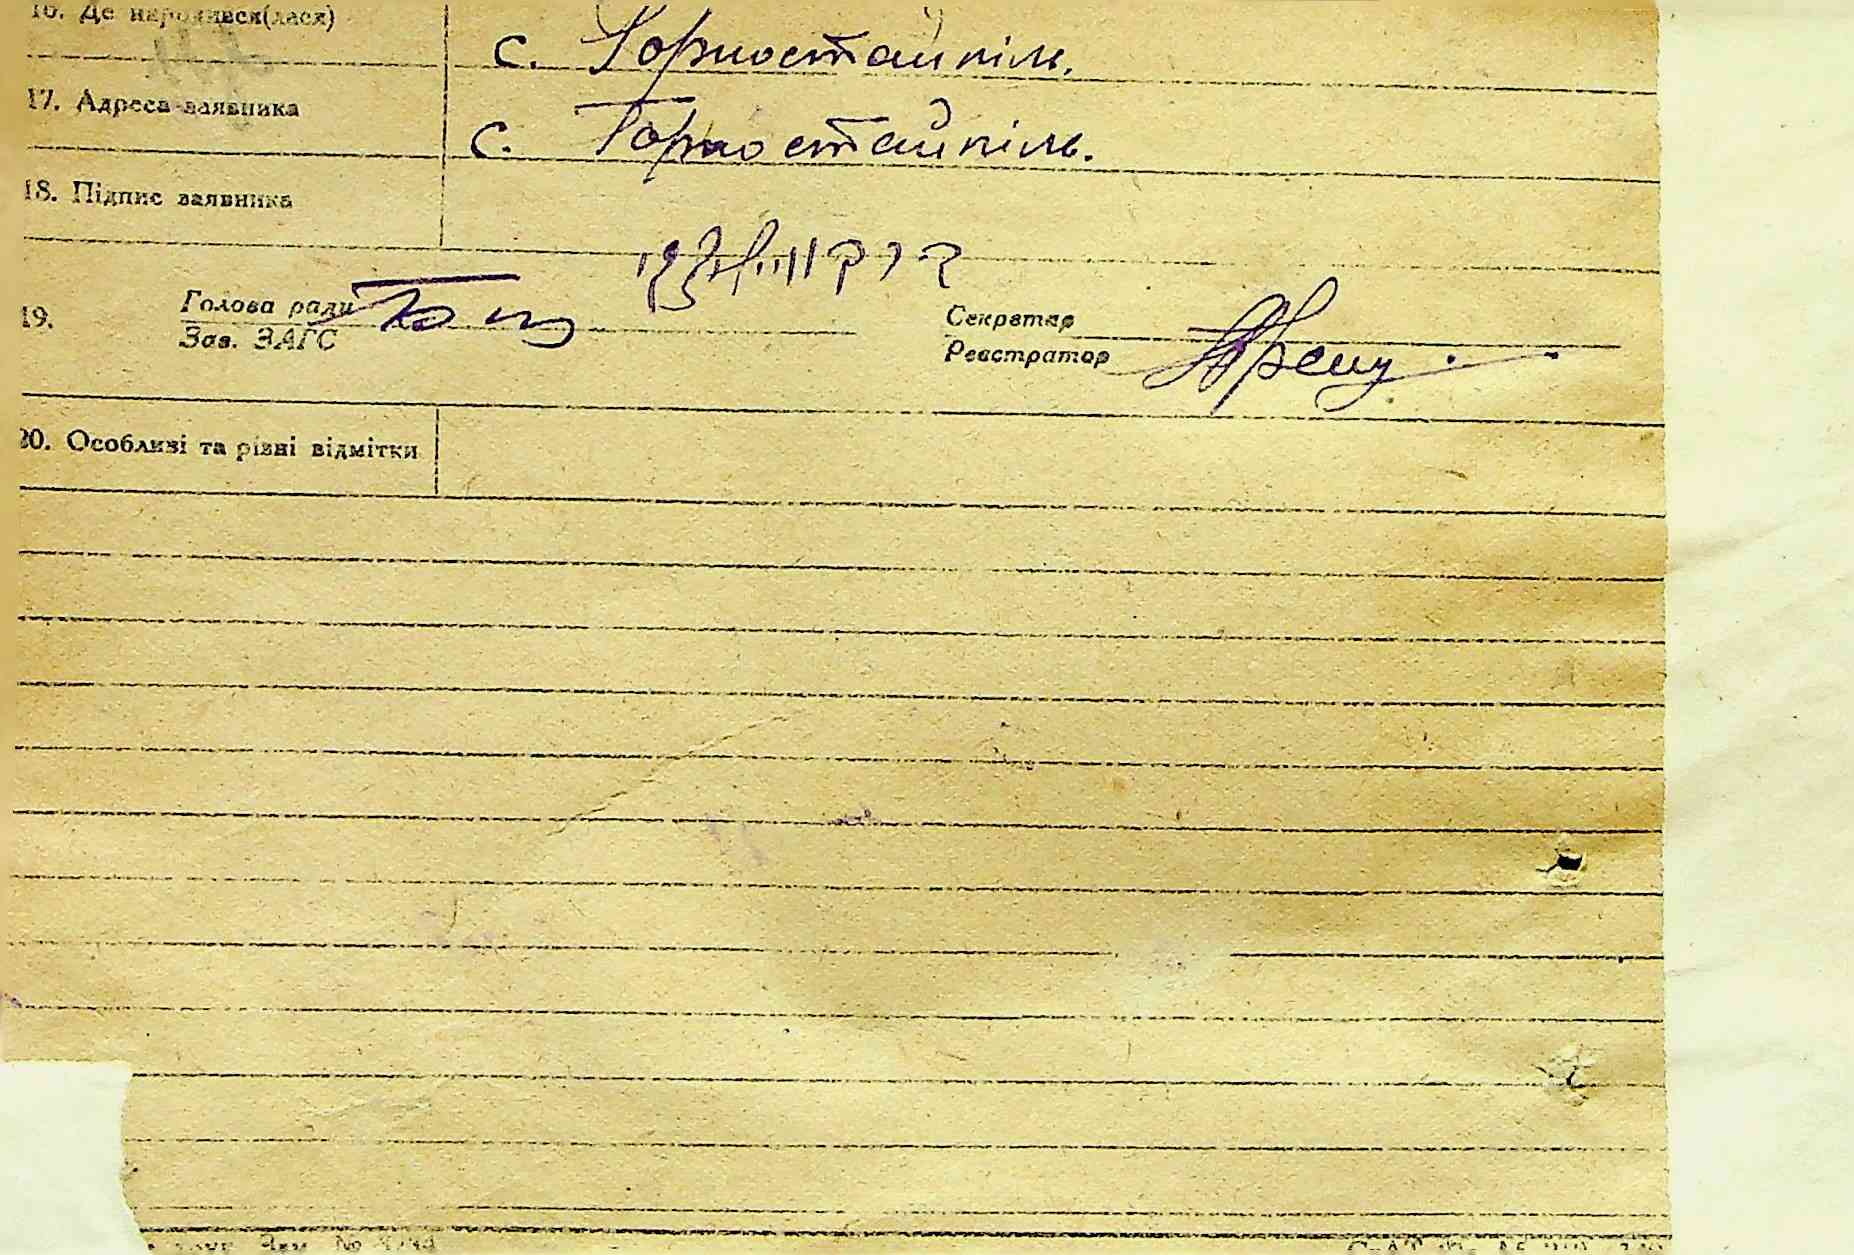 16. Де народився(лася) с. Горностайпіль.
17. Адреса заявника с. Горностайпіль.
18. Підпис заявника
19. Голова ради Секретар
Зав. ЗАГС Реєстратор
20. Особливі та різні відмітки